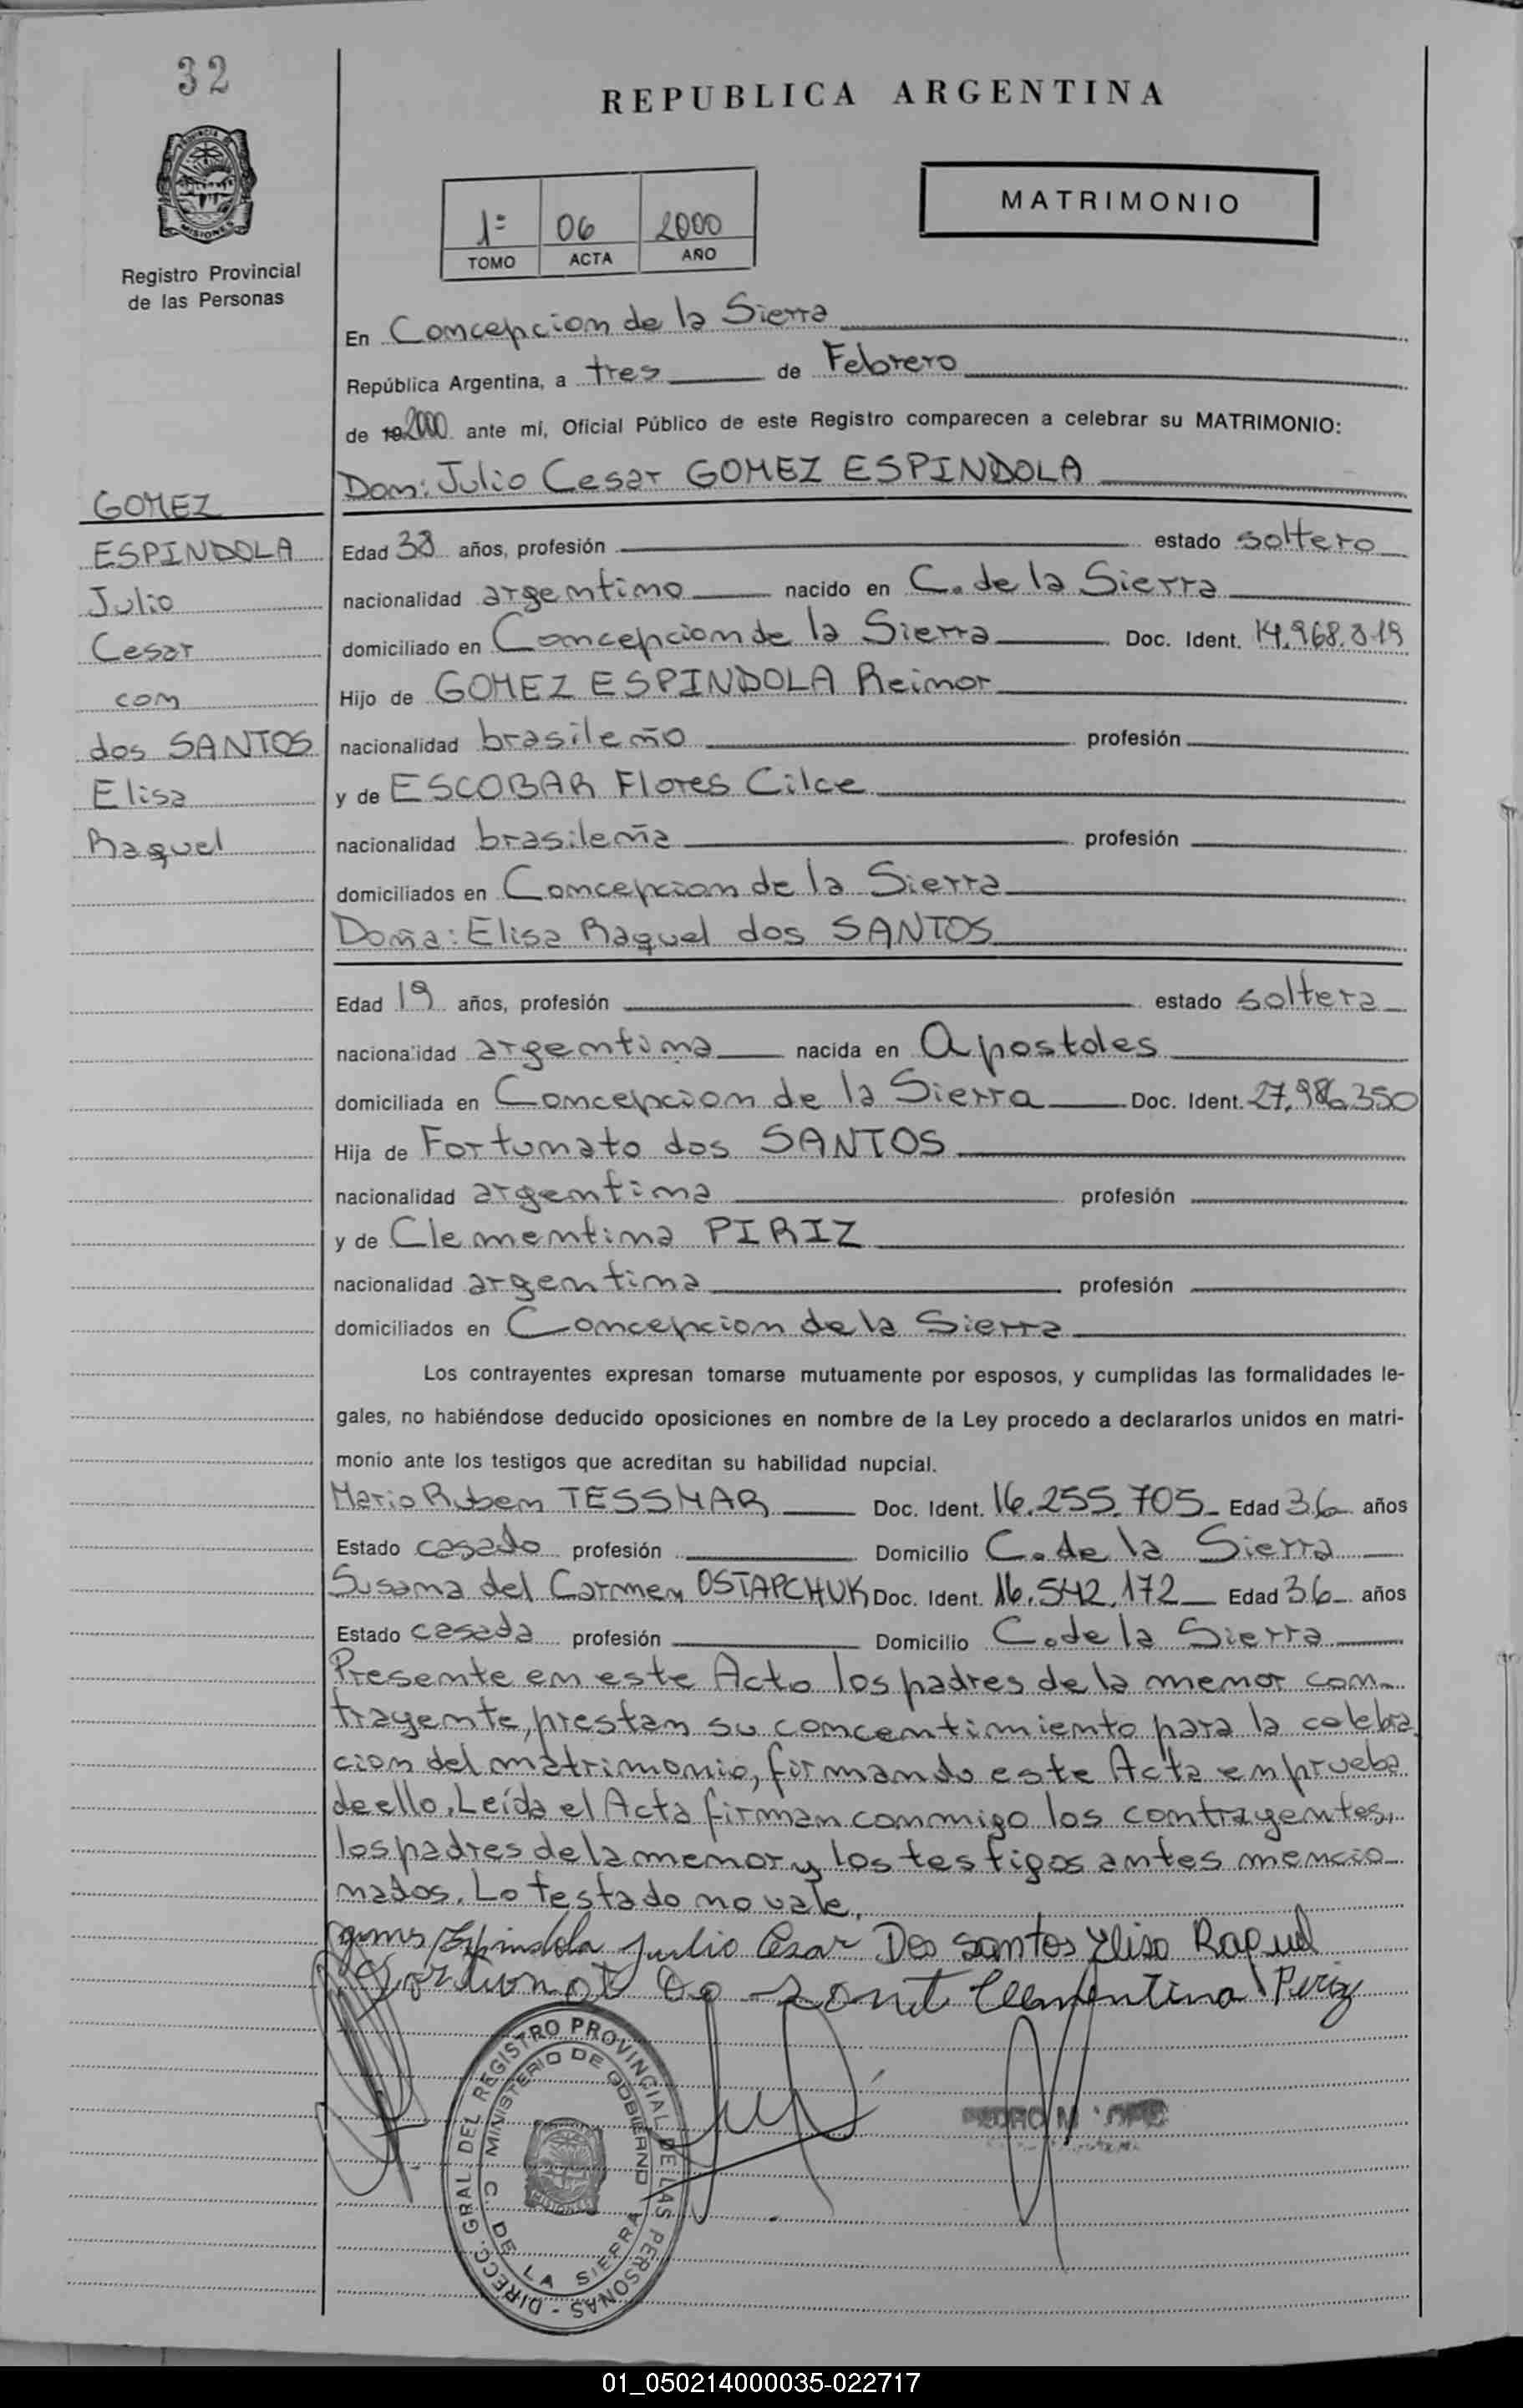 32
REPUBLICA ARGENTINA
PROVINCIA DE
MISIONES
Registro Provincial
de las Personas
1º 06 2000
TOMO ACTA AÑO
MATRIMONIO
En Concepcion de la Sierra
República Argentina, a tres de Febrero
de 19 2000 ante mí, Oficial Público de este Registro comparecen a celebrar su MATRIMONIO:
Don: Julio Cesar GOMEZ ESPINDOLA
GOMEZ
ESPINDOLA
Julio
Cesar
con
dos SANTOS
Elisa
Raquel
Edad 38 años, profesión estado soltero
nacionalidad argentino nacido en C. de la Sierra
domiciliado en Concepcion de la Sierra Doc. Ident. 14.968.819
Hijo de GOMEZ ESPINDOLA Reimor
nacionalidad brasileño profesión
y de ESCOBAR Flores Cilce
nacionalidad brasileña profesión
domiciliados en Concepcion de la Sierra
Doña: Elisa Raquel dos SANTOS
Edad 19 años, profesión estado soltera
nacionalidad argentina nacida en Apostoles
domiciliada en Concepcion de la Sierra Doc. Ident. 27.986.350
Hija de Fortunato dos SANTOS
nacionalidad argentina profesión
y de Clementina PIRIZ
nacionalidad argentina profesión
domiciliados en Concepcion de la Sierra
Los contrayentes expresan tomarse mutuamente por esposos, y cumplidas las formalidades le-
gales, no habiéndose deducido oposiciones en nombre de la Ley procedo a declararlos unidos en matri-
monio ante los testigos que acreditan su habilidad nupcial.
Mario Ruben TESSMAR Doc. Ident. 16.255.705 Edad 36 años
Estado casado profesión Domicilio C. de la Sierra
Susana del Carmen OSTAPCHUK Doc. Ident. 16.542.172 Edad 36 años
Estado casada profesión Domicilio C. de la Sierra
Presente en este Acto los padres de la menor con-
trayente, prestan su concentimiento para la celebra-
cion del matrimonio, firmando este Acta en prueba
de ello. Leída el Acta firman conmigo los contrayentes,
los padres de la menor y los testigos antes mencio-
nados. Lo testado no vale.
Gomes Espindola Julio Cesar Dos santos Elisa Raquel
Clementina Piriz
DIRECC. GRAL. DEL REGISTRO PROVINCIAL DE LAS PERSONAS -
MINISTERIO DE GOBIERNO
C. DE LA SIERRA
MISIONES
01_050214000035-022717